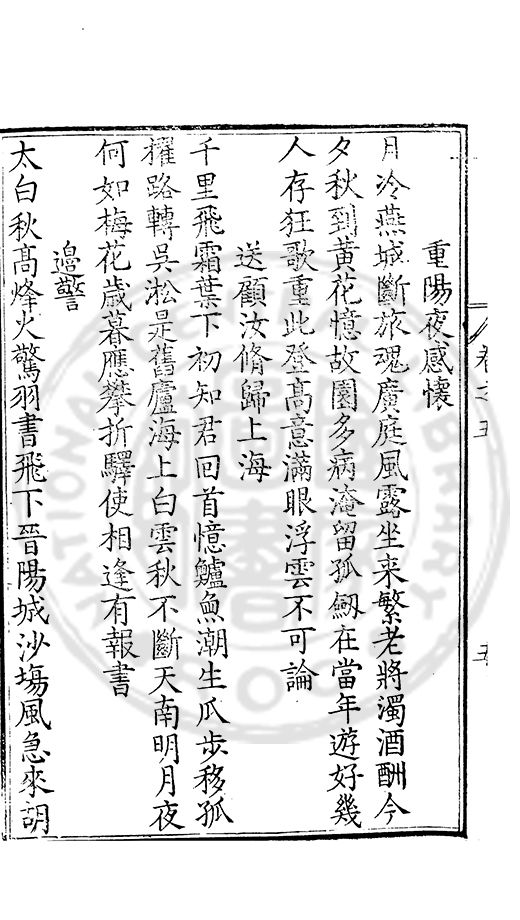 重陽夜感懷
月冷燕城斷旅魂廣庭風露坐来繁老將濁酒酬今
夕秋到黃花憶故園多病淹留孤劒在當年遊好幾
人存狂歌重此登高意滿眼浮雲不可論
送顧汝脩歸上海
千里飛霜葉下初知君回首憶鱸魚潮生瓜歩移孤
櫂路轉吳淞是舊廬海上白雲秋不斷天南明月夜
何如梅花歲暮應攀折驛使相逢有報書
邉警
太白秋髙烽火驚羽書飛下晉陽城沙塲風急來胡
卷之五
五